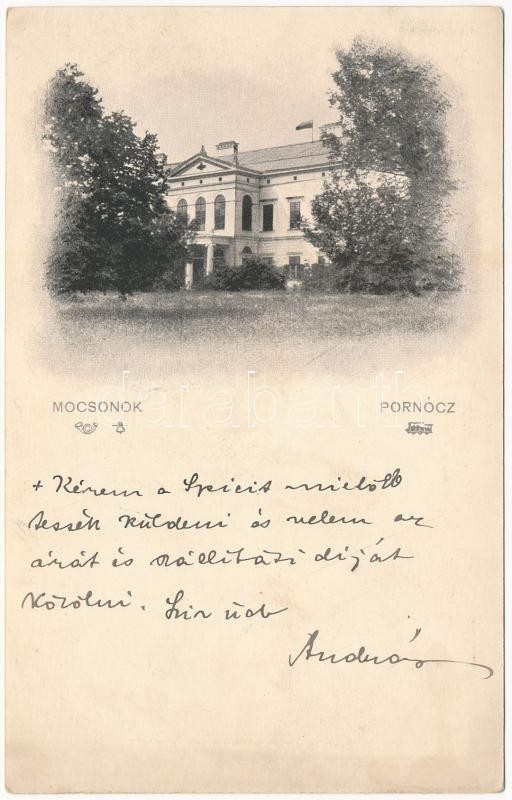 MOCSONOK PORNÓCZ
darabanth
+ Kérem a Spicit mielőbb
tessék küldeni és velem az
árát és szállitási diját
közölni. Szir üdv
András